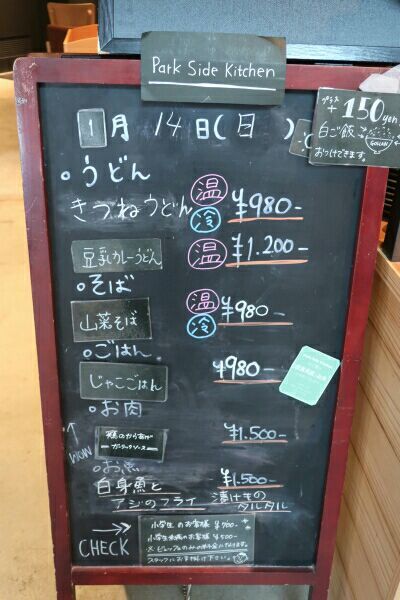 Park Side Kitchen
プラス
+150yen
白ご飯
GOHAN
おつけできます。
1月 14日(日)
。うどん
きつねうどん 温 冷 ¥980-
豆乳カレーうどん 温 ¥1.200-
。そば
山菜そば 温 冷 ¥980
。ごはん
じゃこごはん ¥980-
。お肉
鶏のからあげ
ガーリックソース ¥1.500-
WOW
。お魚
白身魚と
アジのフライ 漬けもの
タルタル ¥1.500-
CHECK
小学生のお客様 ¥700-
小学生未満のお客様 ¥500-